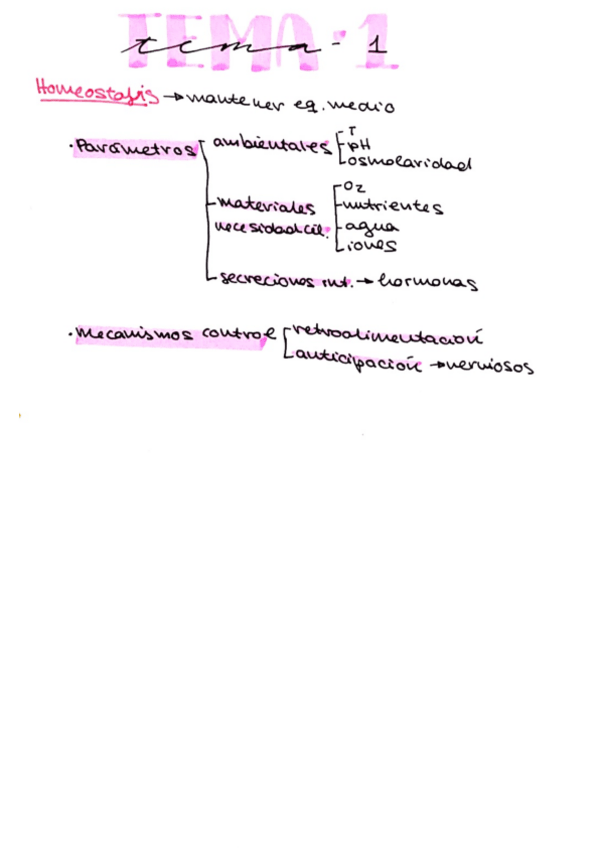 TEMA·1
tema - 1
Homeostasis → mantener eq. medio
· Parámetros ambientales T
pH
osmolaridad
materiales O2
necesidad cél. nutrientes
agua
iones
secreciones int. → hormonas
· Mecanismos control retroalimentación
anticipación → nerviosos